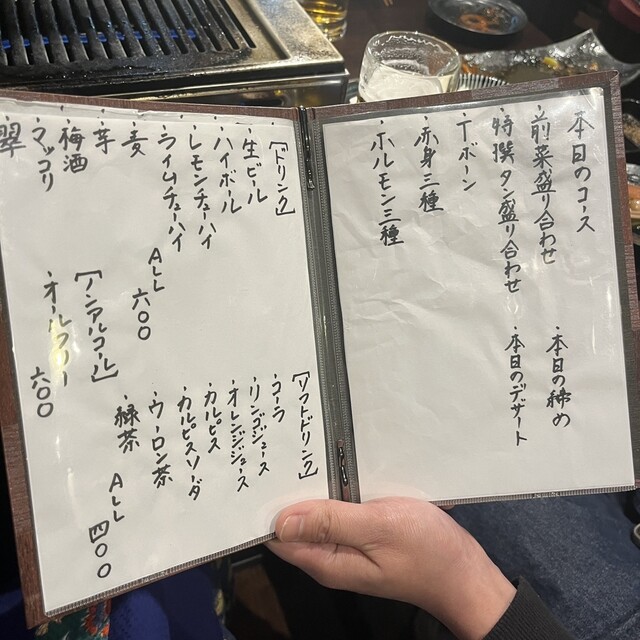 本日のコース
・前菜盛り合わせ
・特撰タン盛り合わせ
・Tボーン
・赤身三種
・ホルモン三種
・本日の締め
・本日のデザート
[ドリンク]
・生ビール
・ハイボール
・レモンチューハイ
・ライムチューハイ
・麦
・芋
・梅酒
・マッコリ
・翠
ALL 六〇〇
[ノンアルコール]
・オールフリー 六〇〇
[ソフトドリンク]
・コーラ
・リンゴジュース
・オレンジジュース
・カルピス
・カルピスソーダ
・ウーロン茶
・緑茶
ALL 四〇〇